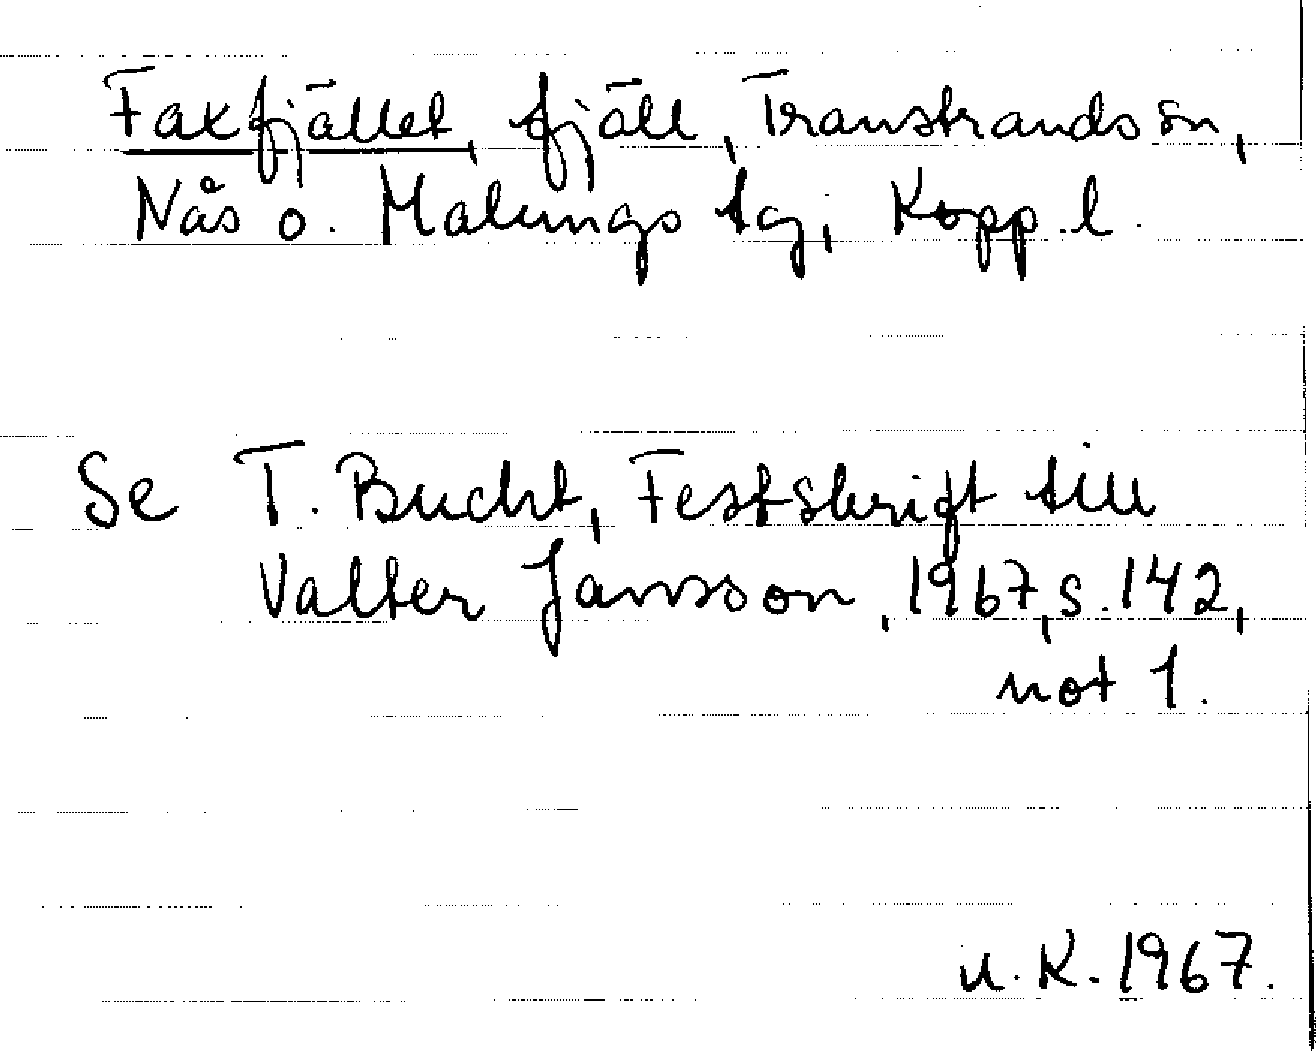 Faxfjället, fjäll, Transtrands sn,
Nås o. Malungs tg, Kopp. l.
Se T. Bucht, Festskrift till
Valter Jansson, 1967, s. 142,
not 1.
u. K. 1967.